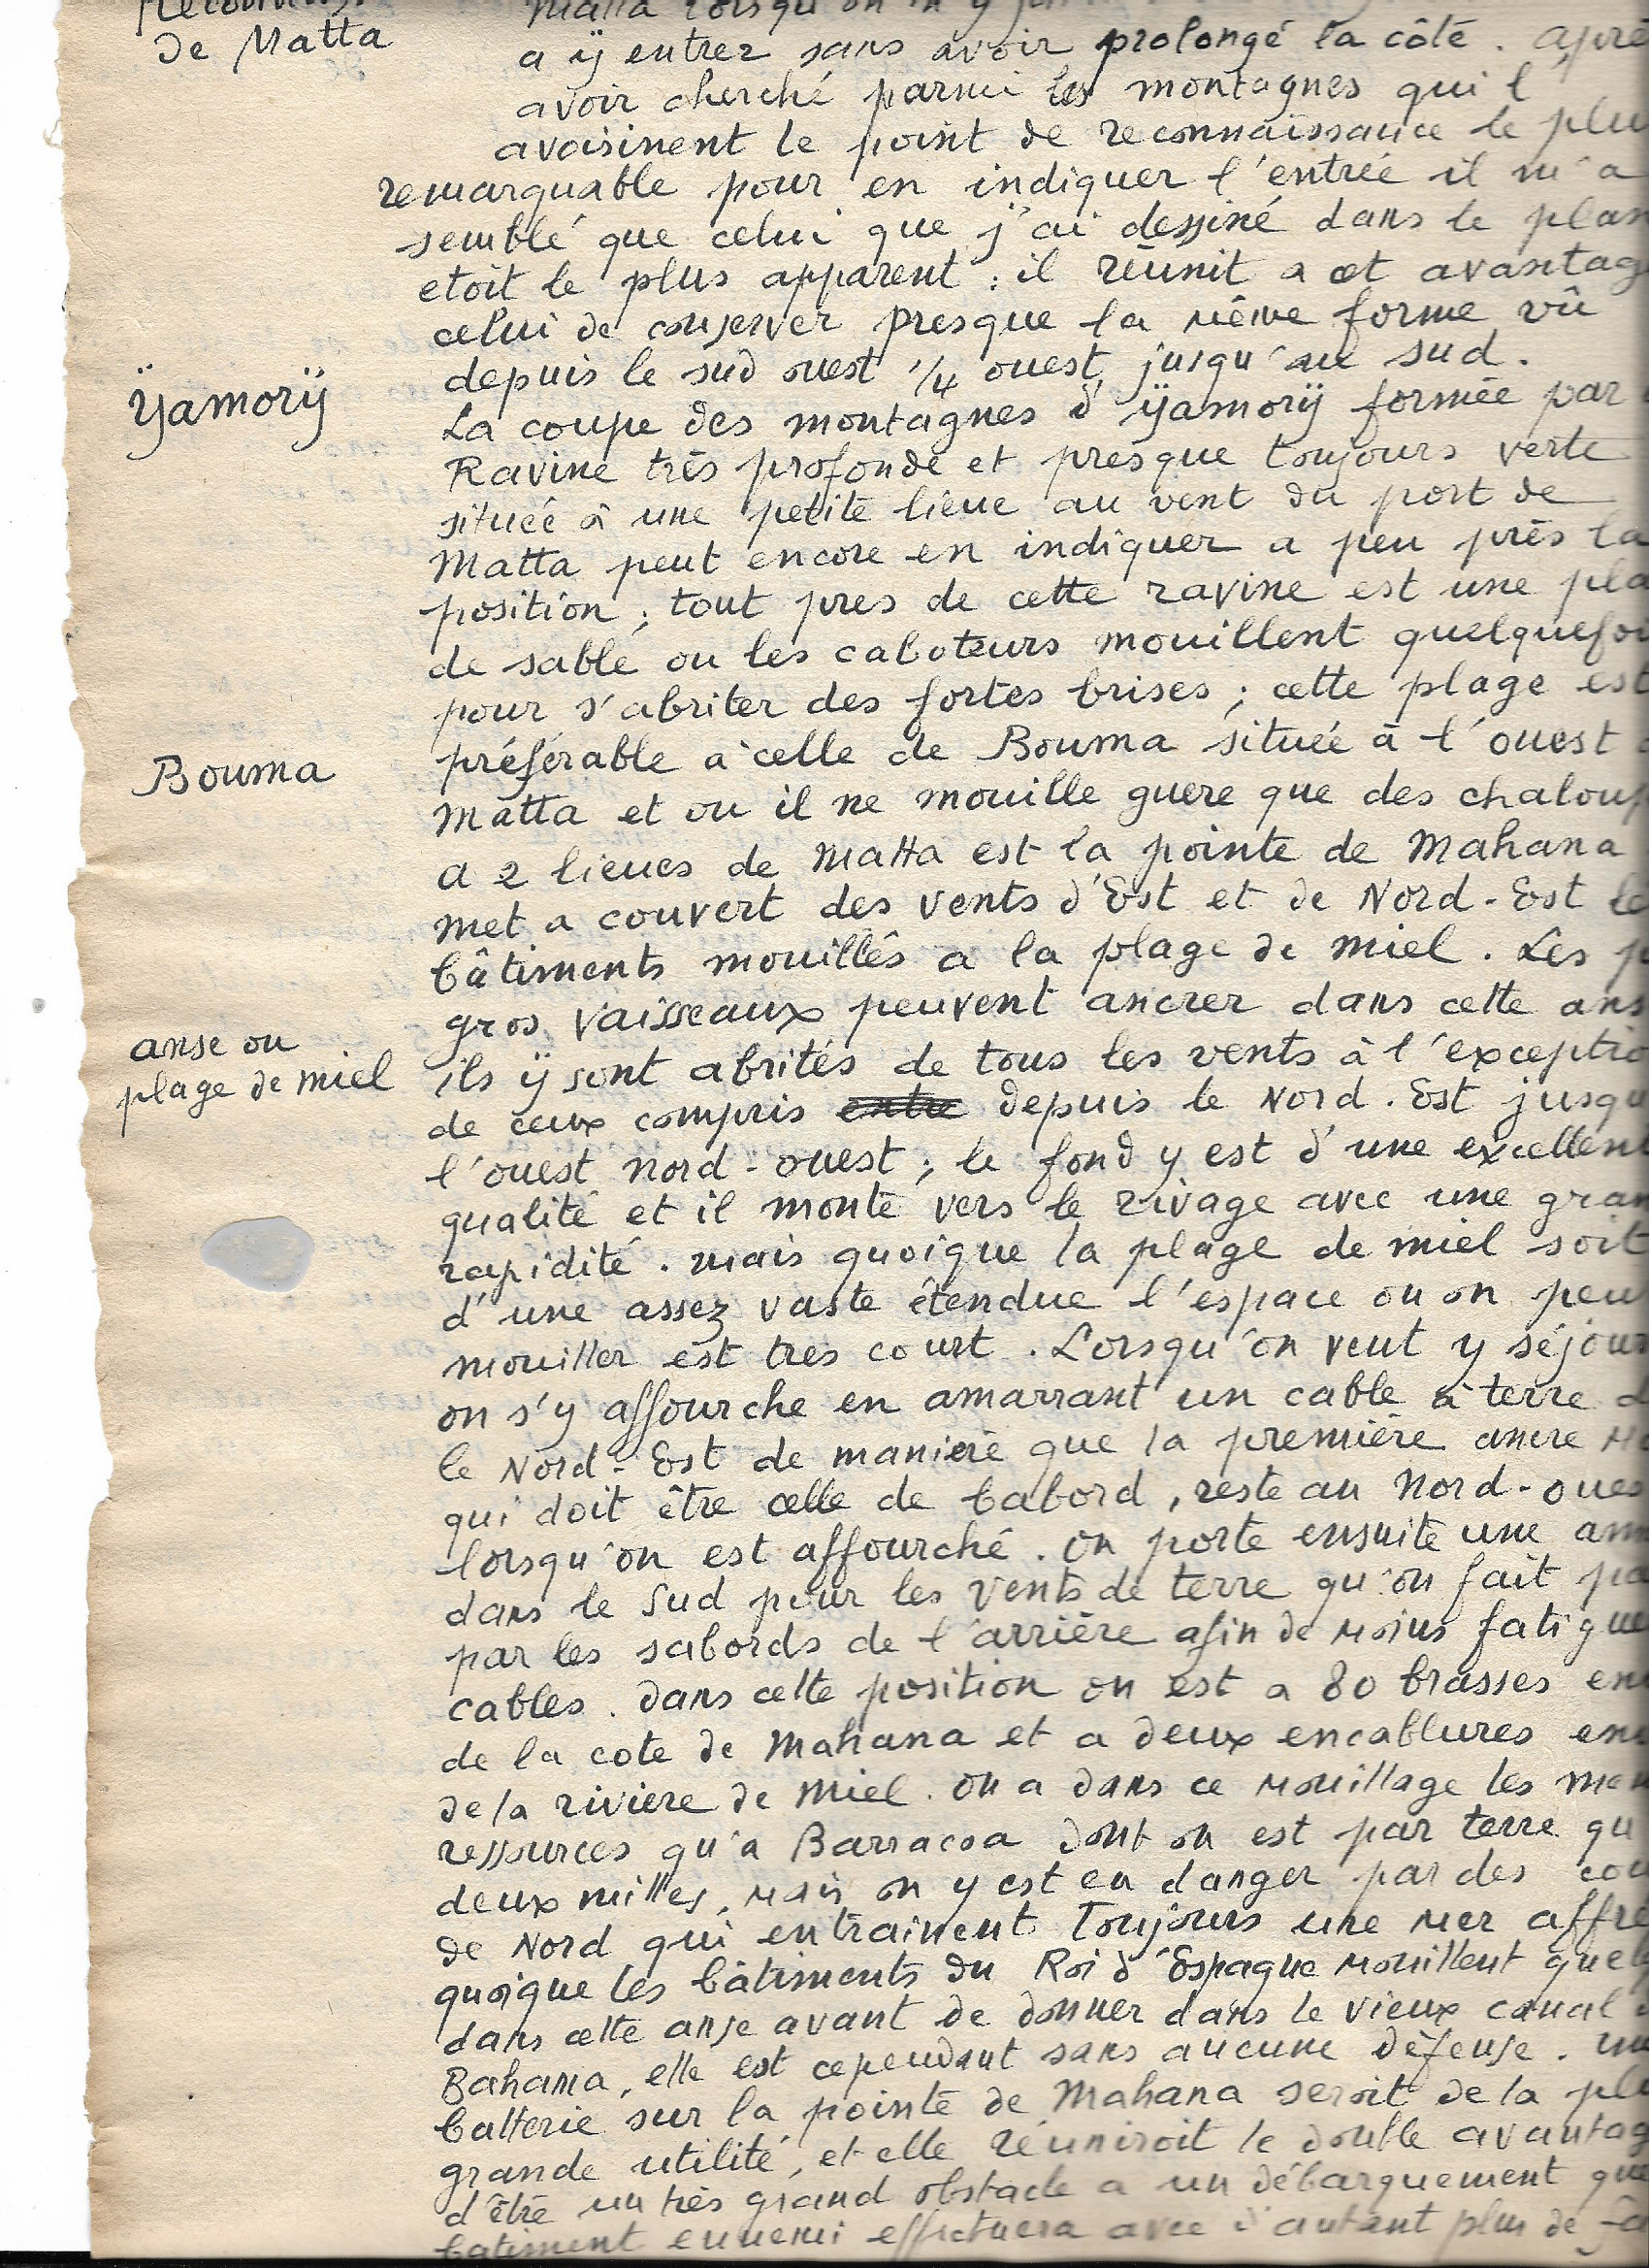 de Matta
a ÿ entrer sans avoir prolongé la côte. aprè
avoir cherché parmi les montagnes qui l'
avoisinent le point de reconnaissance le plu
remarquable pour en indiquer l'entrée il m'a
semblé que celui que j'ai dessiné dans le plan
etoit le plus apparent : il réunit a cet avantag
celui de conserver presque la même forme vû
depuis le sud ouest 1/4 ouest jusqu'au sud.
Ÿamorÿ
La coupe des montagnes d'ÿamorÿ formée par
Ravine très profonde et presque toujours verte
située à une petite lieue au vent du port de
Matta peut encore en indiquer a peu près la
position ; tout pres de cette ravine est une pla
de sable ou les caboteurs mouillent quelquefoi
pour s'abriter des fortes brises ; cette plage est
Bouma
préférable à celle de Bouma située à l'ouest
Matta et ou il ne mouille guere que des chaloup
a 2 lieues de Matta est la pointe de Mahana
met a couvert des vents d'Est et de Nord-Est le
bâtiments mouillés a la plage de miel. Les p
gros vaisseaux peuvent ancrer dans cette ans
anse ou
plage de miel
ils ÿ sont abrités de tous les vents à l'exceptio
de ceux compris entre depuis le Nord-Est jusqu
l'ouest nord-ouest ; le fond y est d'une excellen
qualité et il monte vers le rivage avec une gran
rapidité. mais quoique la plage de miel soit
d'une assez vaste étendue l'espace ou on peu
mouiller est tres court. Lorsqu'on veut y séjour
on s'y affourche en amarrant un cable à terre d
le Nord-Est de maniere que la première ancre
qui doit être celle de babord, reste au Nord-oues
lorsqu'on est affourché. On porte ensuite une an
dans le Sud pour les vents de terre qu'on fait pa
par les sabords de l'arrière afin de moins fatigue
cables. dans cette position on est a 80 brasses en
de la cote de Mahana et a deux encablures en
de la riviere de Miel. on a dans ce mouillage les
ressources qu'a Barracoa dont on est par terre qu
deux milles, mais on y est en danger par des cou
de Nord qui entrainent toujours une mer affre
quoique les bâtiments du Roi d'Espagne mouillent quelq
dans cette anse avant de donner dans le vieux canal
Bahama, elle est cependant sans aucune défense. une
batterie sur la pointe de Mahana seroit de la plu
grande utilité, et elle réuniroit le double avantag
d'être un très grand obstacle a un débarquement que
batiment ennemi effectuera avec d'autant plus de